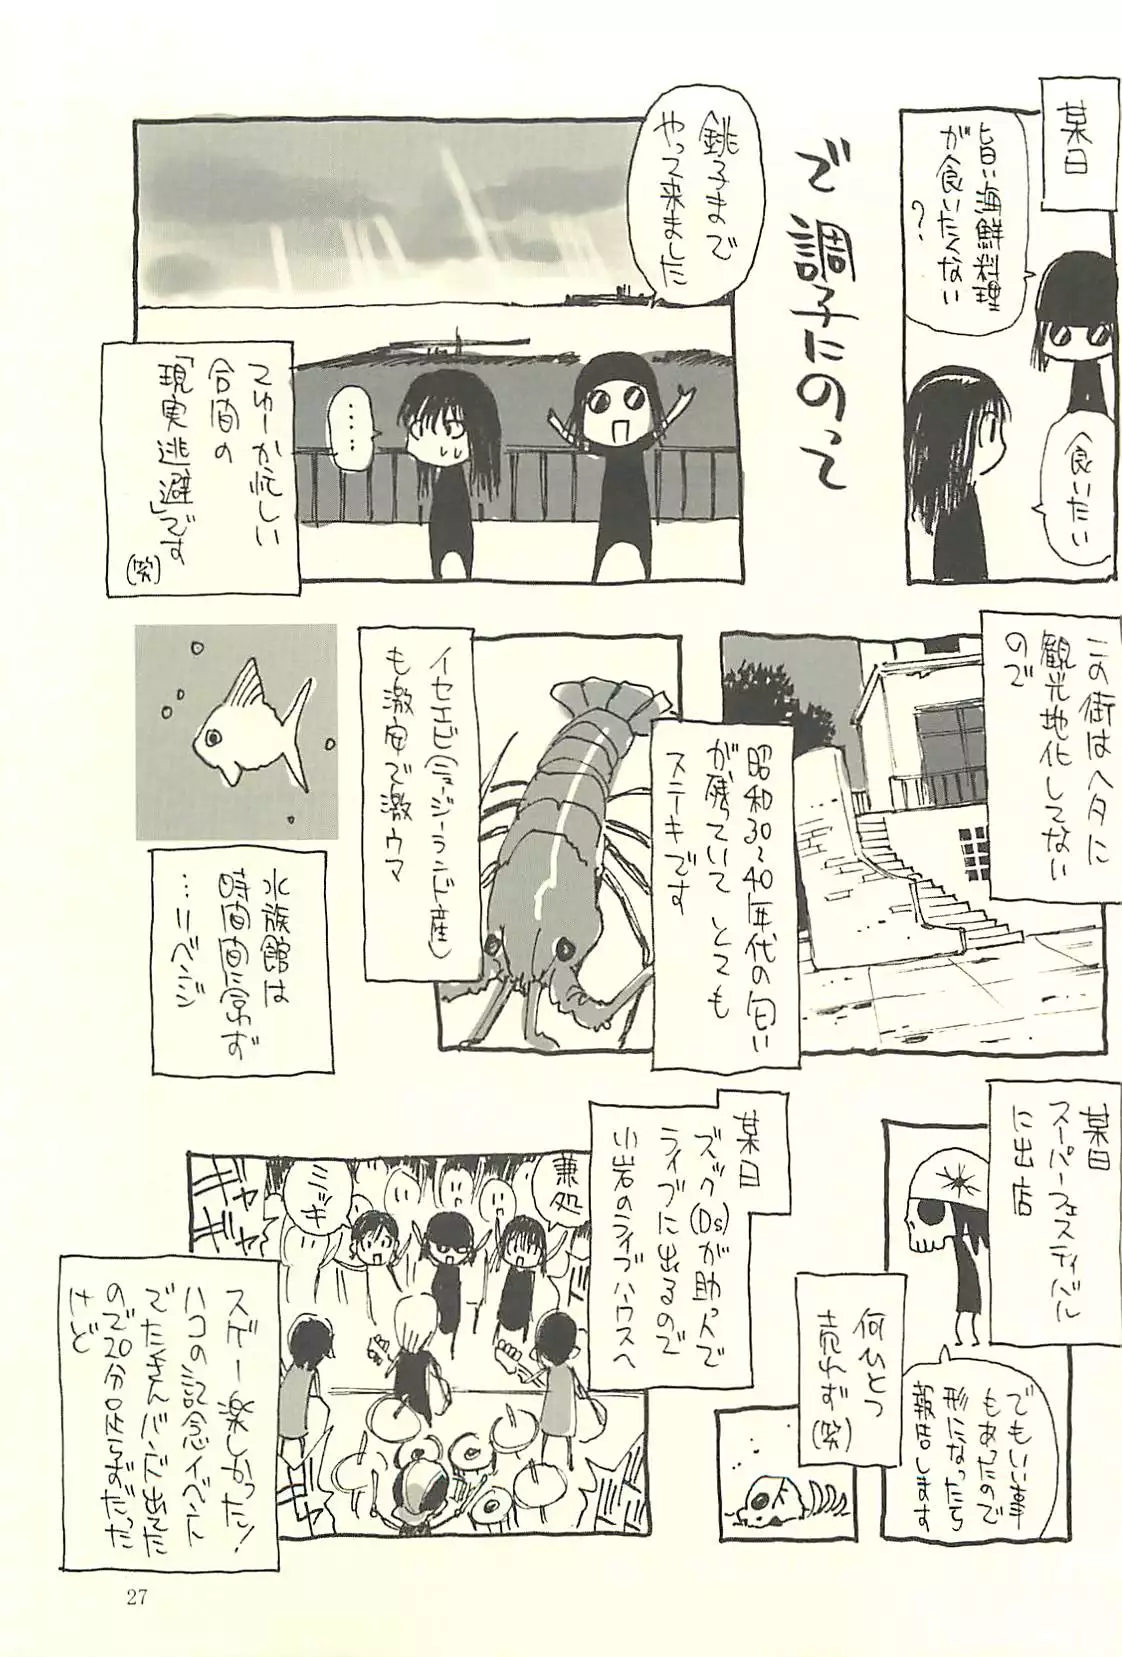 某日
旨い海鮮料理
が食いたくない
？
食いたい
で調子にのって
銚子まで
やって来ました
……
てゆーか忙しい
合間の
「現実逃避」です
(笑)
この街はヘタに
観光地化してない
ので
昭和30〜40年代の匂い
が残っていてとても
ステキです
イセエビ(ニュージーランド産)
も激安で激ウマ
水族館は
時間間に合わず
…リベンジ
某日
スーパーフェスティバル
に出店
何ひとつ
売れず(笑)
でもいい事
もあったので
形になったら
報告します
某日
ズック(Ds)が助っ人で
ライブに出るので
小岩のライブハウスへ
兼処
ミッギー
ギャギャ
スゲー楽しかった！
ハコの記念イベント
でたくさんバンド出てた
ので20分足らずだった
けど
27